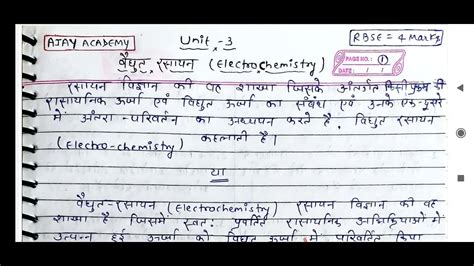 AJAY ACADEMY
Unit-3
RBSE = 4 Marks
वैधुत रसायन (Electrochemistry)
PAGE NO.: 1
DATE: / /
रसायन विज्ञान की वह शाखा जिसके अंतर्गत किसी
रासायनिक ऊर्जा एवं विधुत ऊर्जा का संबंध एवं उनके एक-दुसरे
में अंतरा-परिवर्तन का अध्ययन करते है, विधुत रसायन
(Electro-chemistry) कहलाती है।
या
वैधुत-रसायन (Electrochemistry) रसायन विज्ञान की वह
शाखा है जिसमे स्वतः प्रवर्तित रासायनिक अभिक्रियाओं में
उत्पन्न हुई ऊर्जा को विधुत ऊर्जा मे परिवर्तित किया